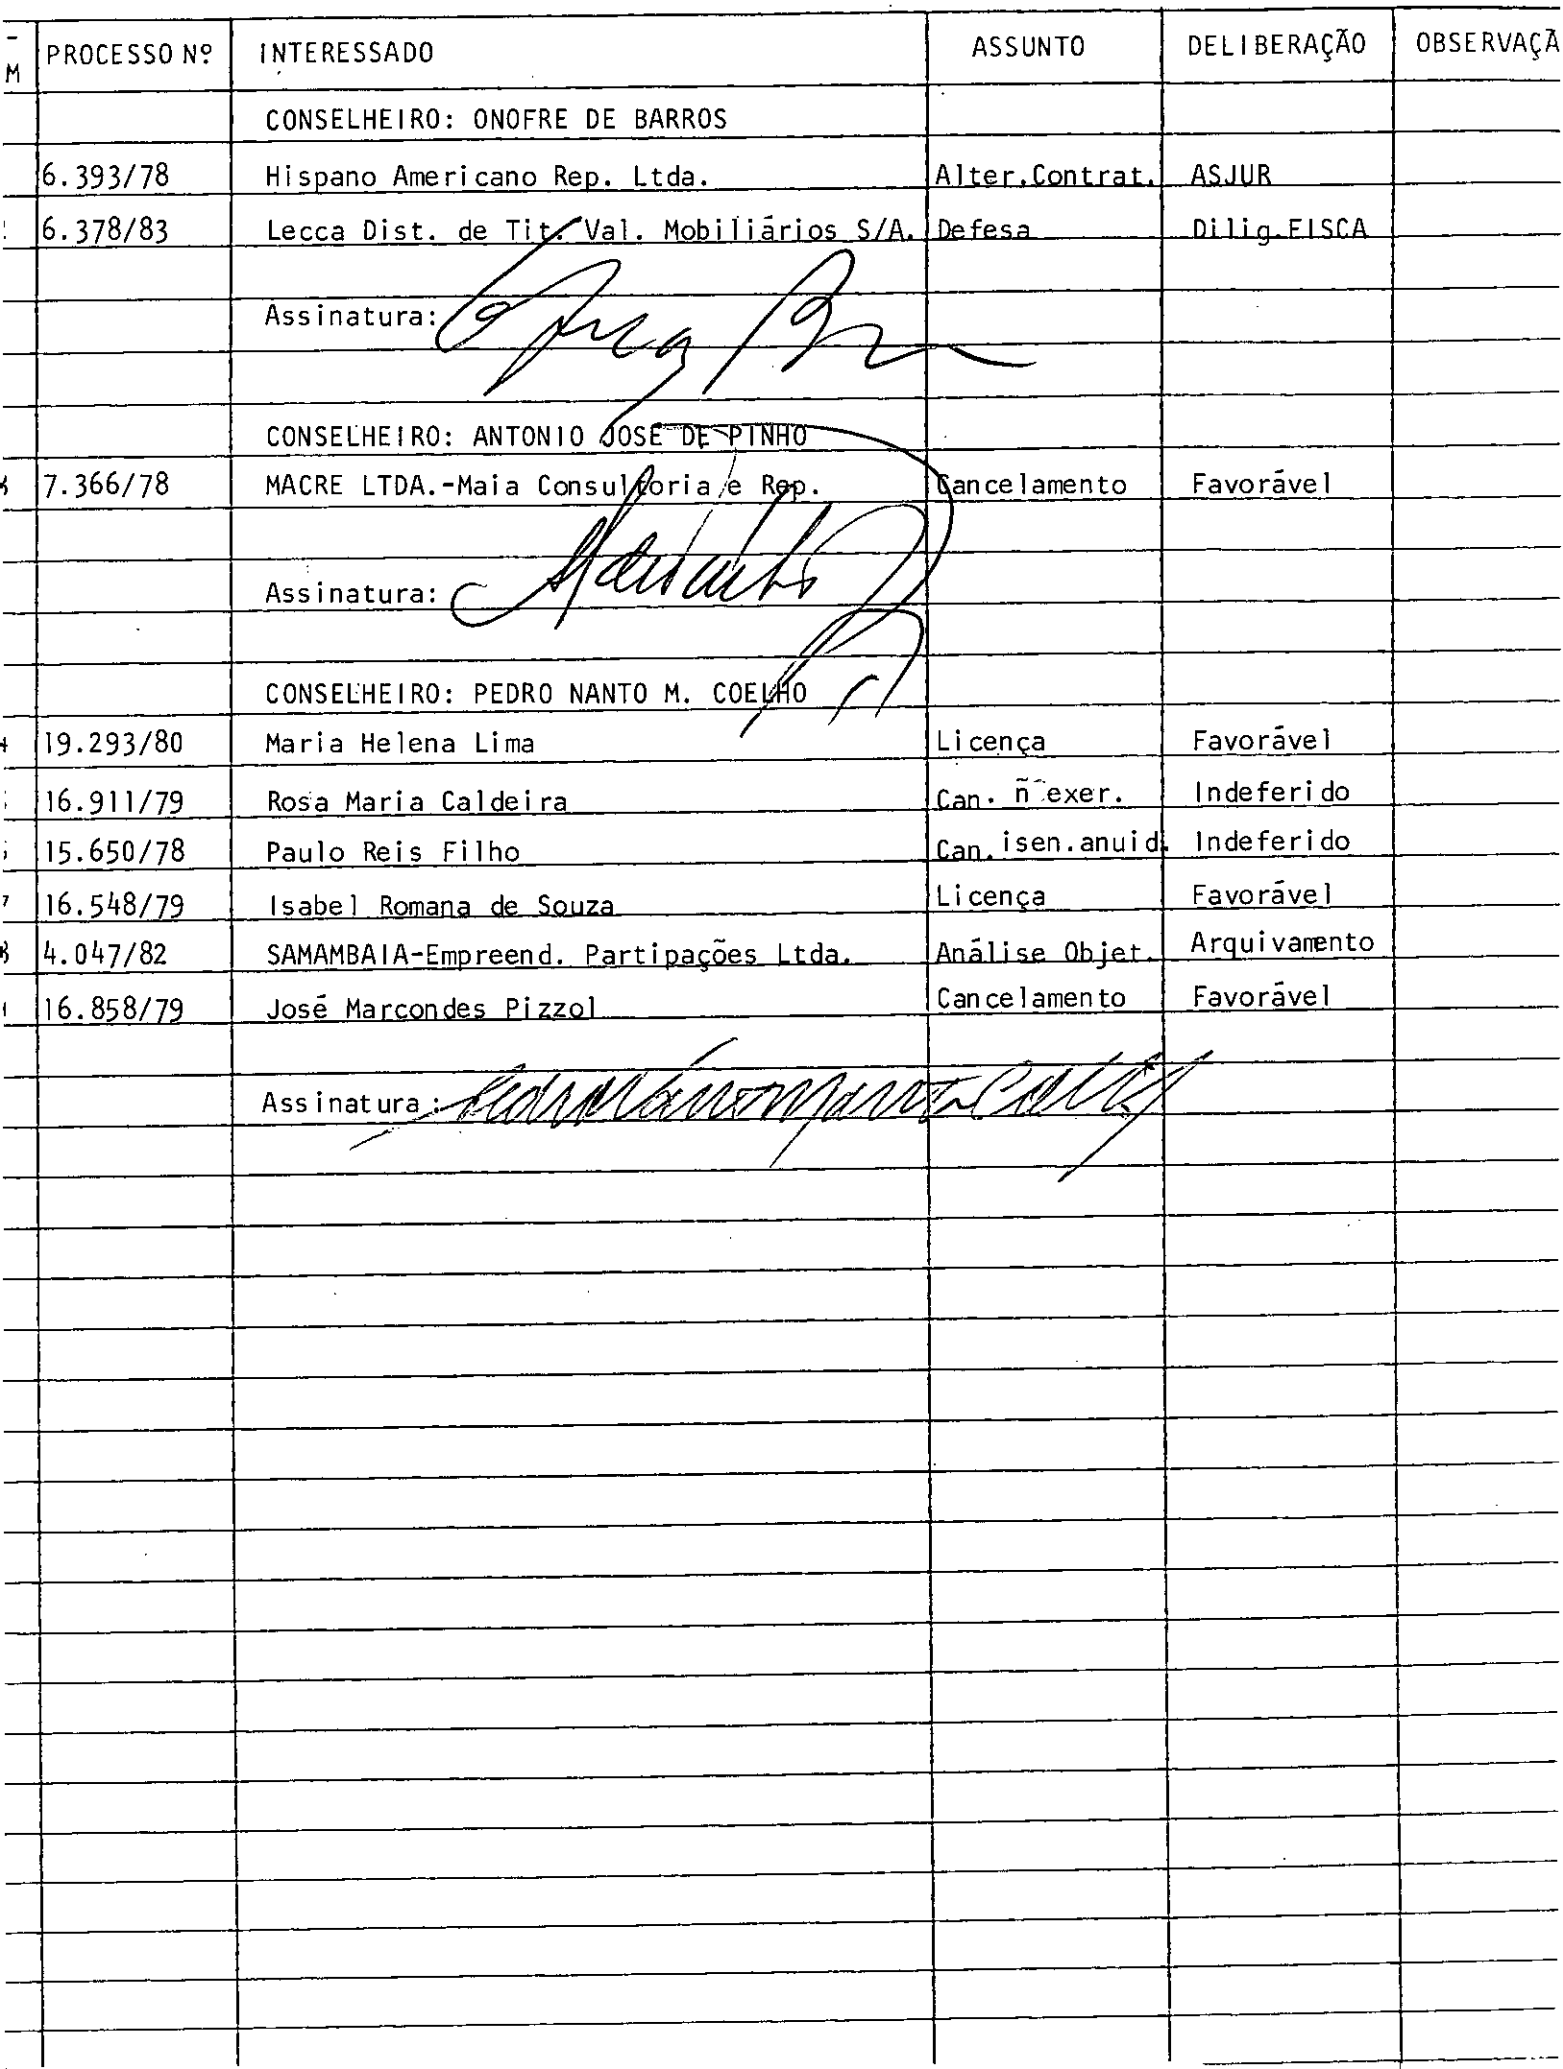 - M PROCESSO Nº INTERESSADO ASSUNTO DELIBERAÇÃO OBSERVAÇÃ
CONSELHEIRO: ONOFRE DE BARROS
6.393/78 Hispano Americano Rep. Ltda. Alter.Contrat. ASJUR
6.378/83 Lecca Dist. de Tit. Val. Mobiliários S/A. Defesa Dilig.FISCA
Assinatura:
CONSELHEIRO: ANTONIO JOSE DE PINHO
7.366/78 MACRE LTDA.-Maia Consultoria e Rep. Cancelamento Favorável
Assinatura:
CONSELHEIRO: PEDRO NANTO M. COELHO
19.293/80 Maria Helena Lima Licença Favorável
16.911/79 Rosa Maria Caldeira Can. ñ exer. Indeferido
15.650/78 Paulo Reis Filho Can. isen.anuid. Indeferido
7 16.548/79 Isabel Romana de Souza Licença Favorável
4.047/82 SAMAMBAIA-Empreend. Partipações Ltda. Análise Objet. Arquivamento
16.858/79 José Marcondes Pizzol Cancelamento Favorável
Assinatura: